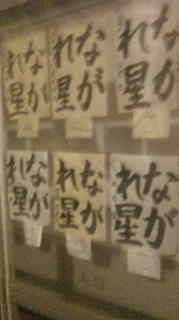 ながれ星
ながれ星
ながれ星
ながれ星
ながれ星
ながれ星